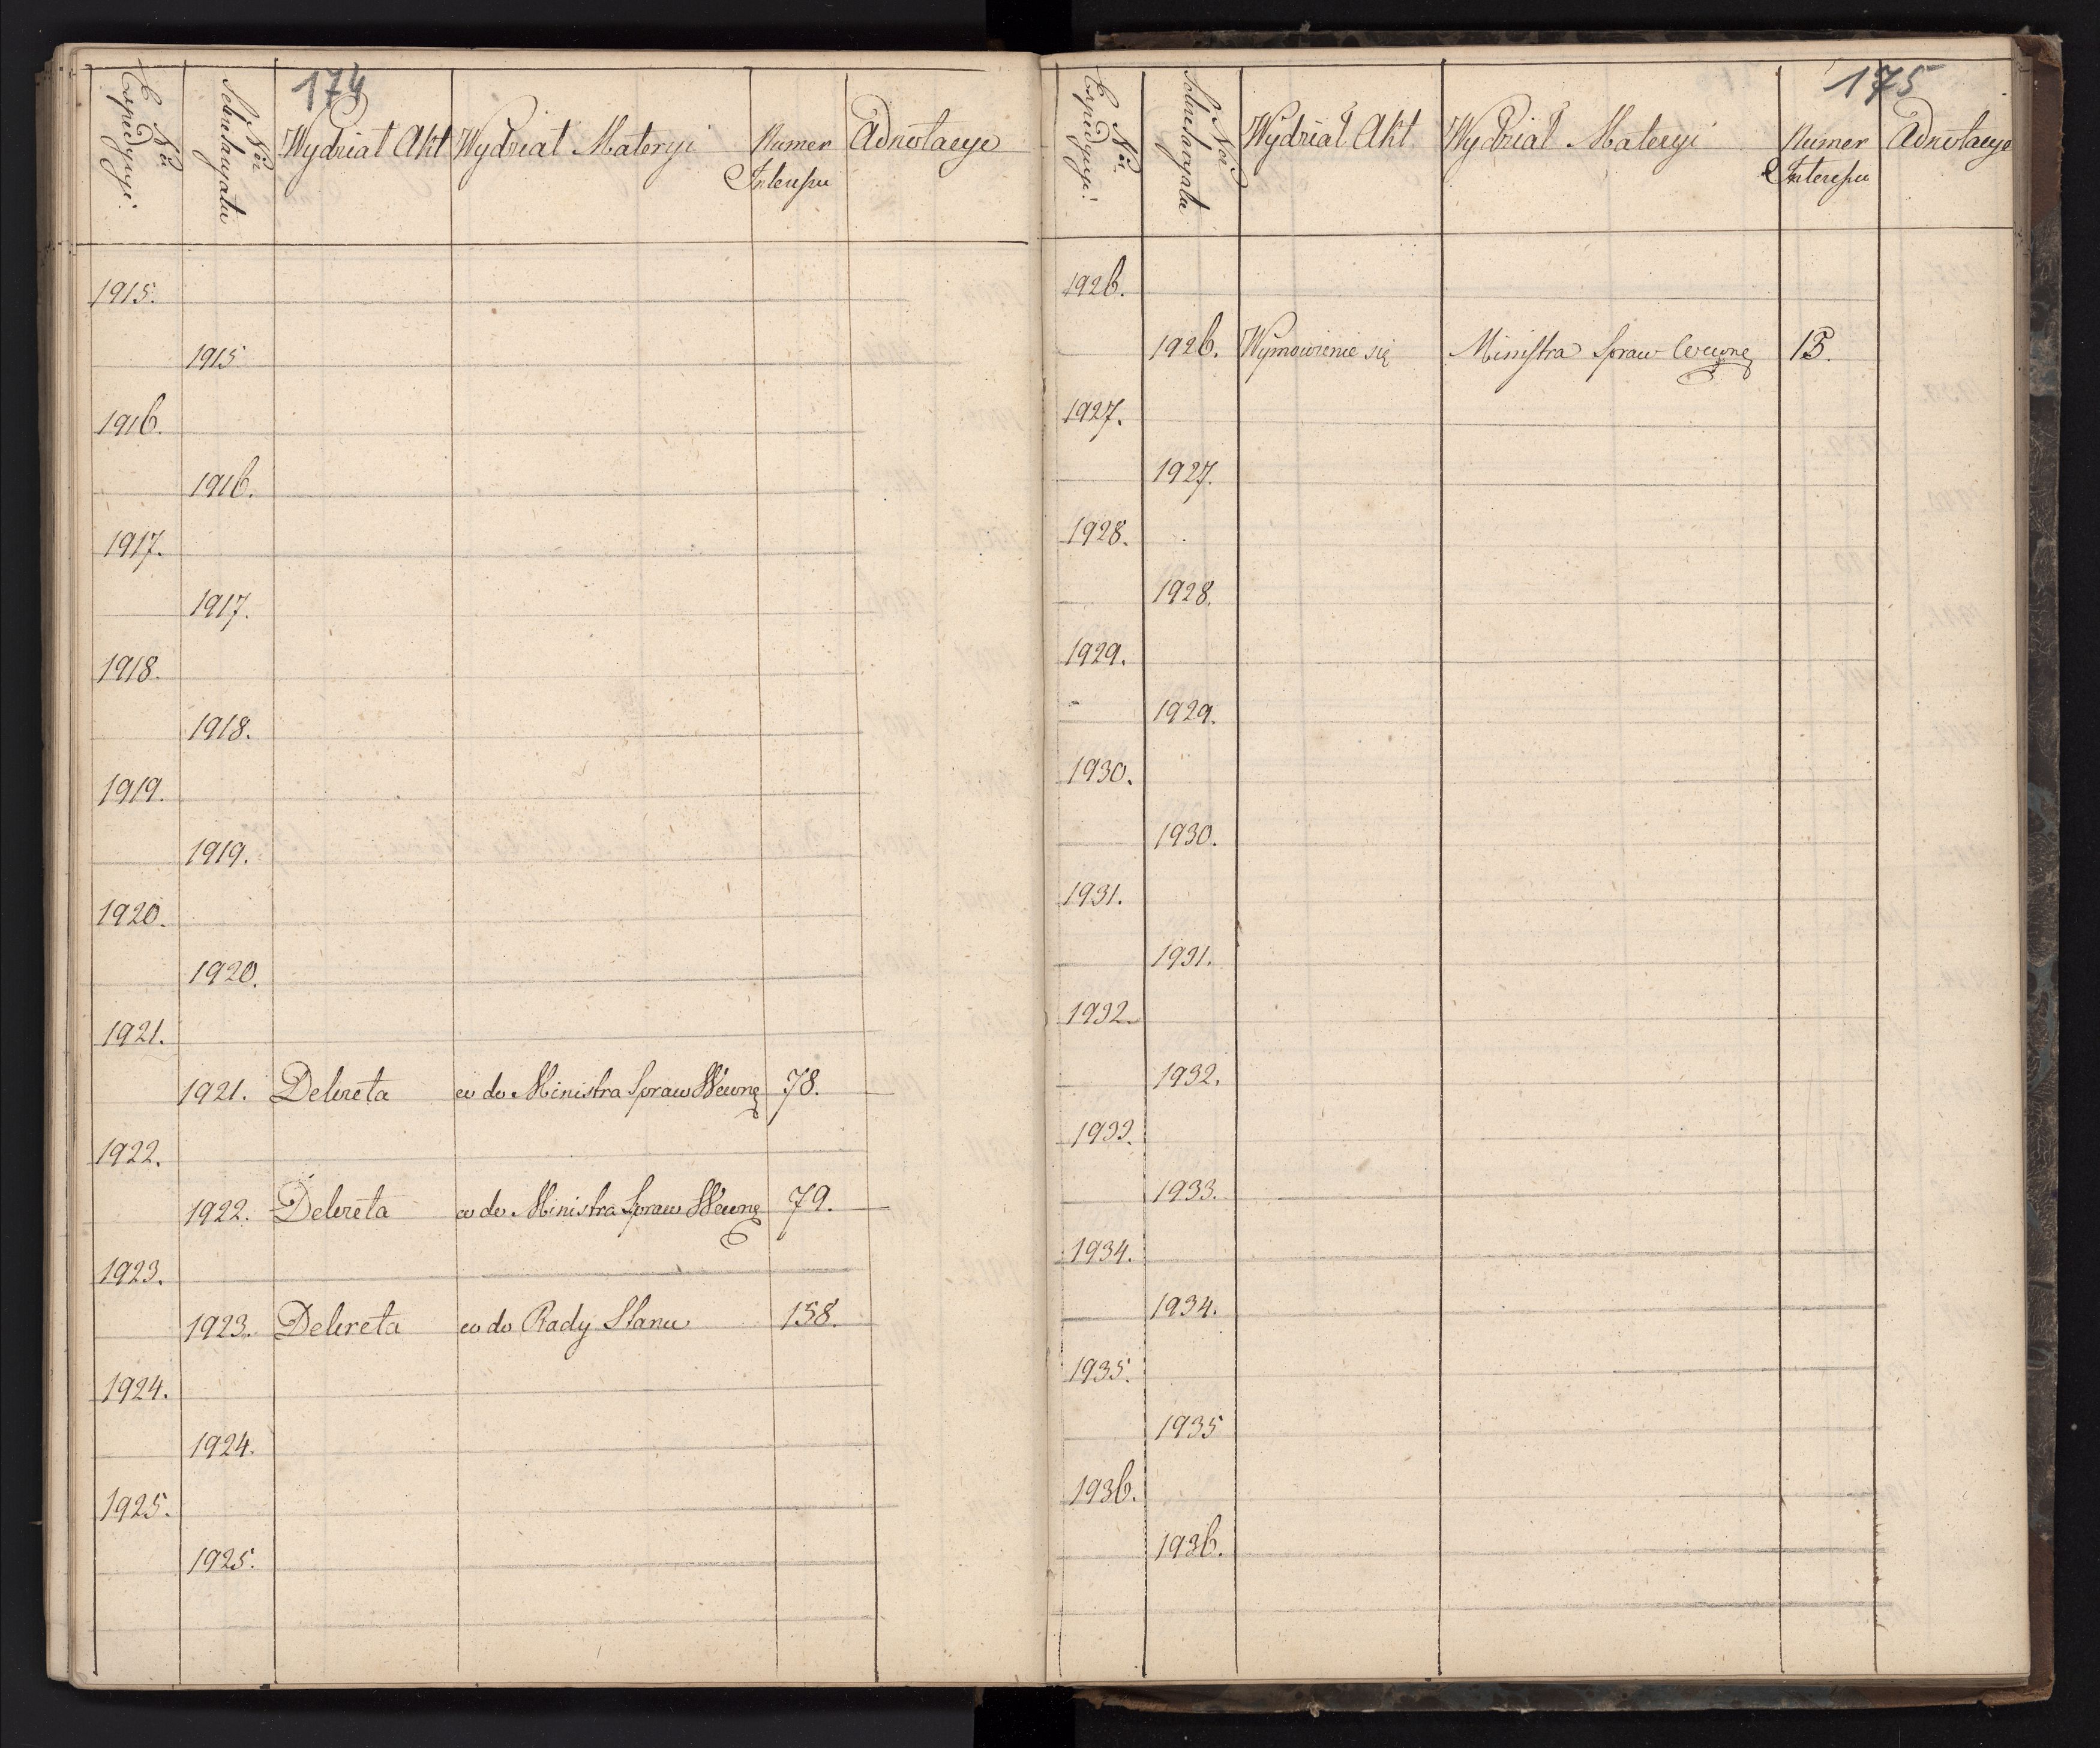 174
Nō
Expedycyi.
Nō
Sekretaryatu
Wydział Akt
Wydział Materyi
Numer
Interesu
Adnotacye
1915.
1915
1916.
1916.
1917.
1917.
1918.
1918.
1919.
1919.
1920.
1920.
1921.
1921. Dekreta co do Ministra Spraw Wewnę 78.
1922.
1922. Dekreta co do Ministra Spraw Wewnę 79.
1923.
1923. Dekreta co do Rady Stanu 158.
1924.
1924.
1925.
1925.
175
Nō
Expedycyi.
Nō
Sekretaryatu
Wydział Akt
Wydział Materyi
Numer
Interesu
Adnotacye
1926.
1926. Wymowienie się Ministra Spraw Wewnę 13.
1927.
1927.
1928.
1928.
1929.
1929.
1930.
1930.
1931.
1931.
1932.
1932.
1933.
1933.
1934.
1934.
1935.
1935
1936.
1936.